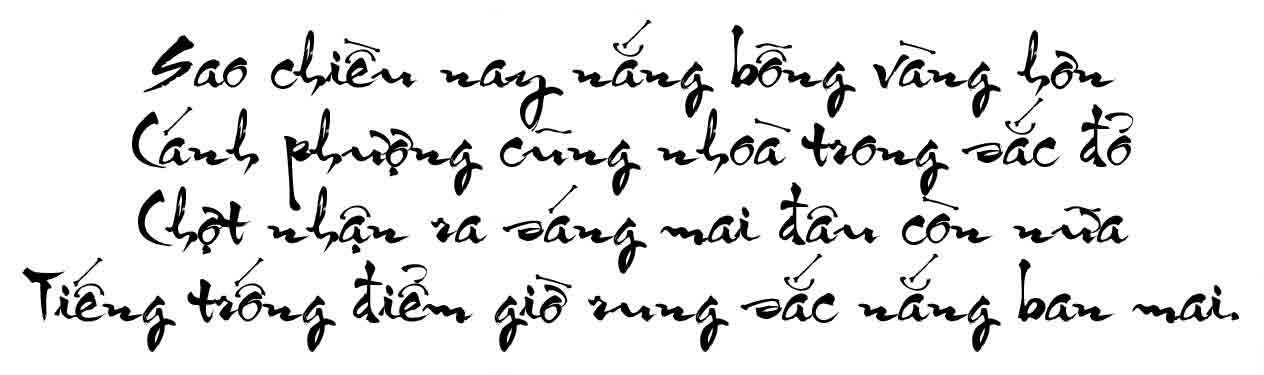 Sao chiều nay nắng bỗng vàng hơn
Cánh phượng cũng nhòa trong sắc đỏ
Chợt nhận ra sáng mai đâu còn nữa
Tiếng trống điểm giờ rung sắc nắng ban mai.